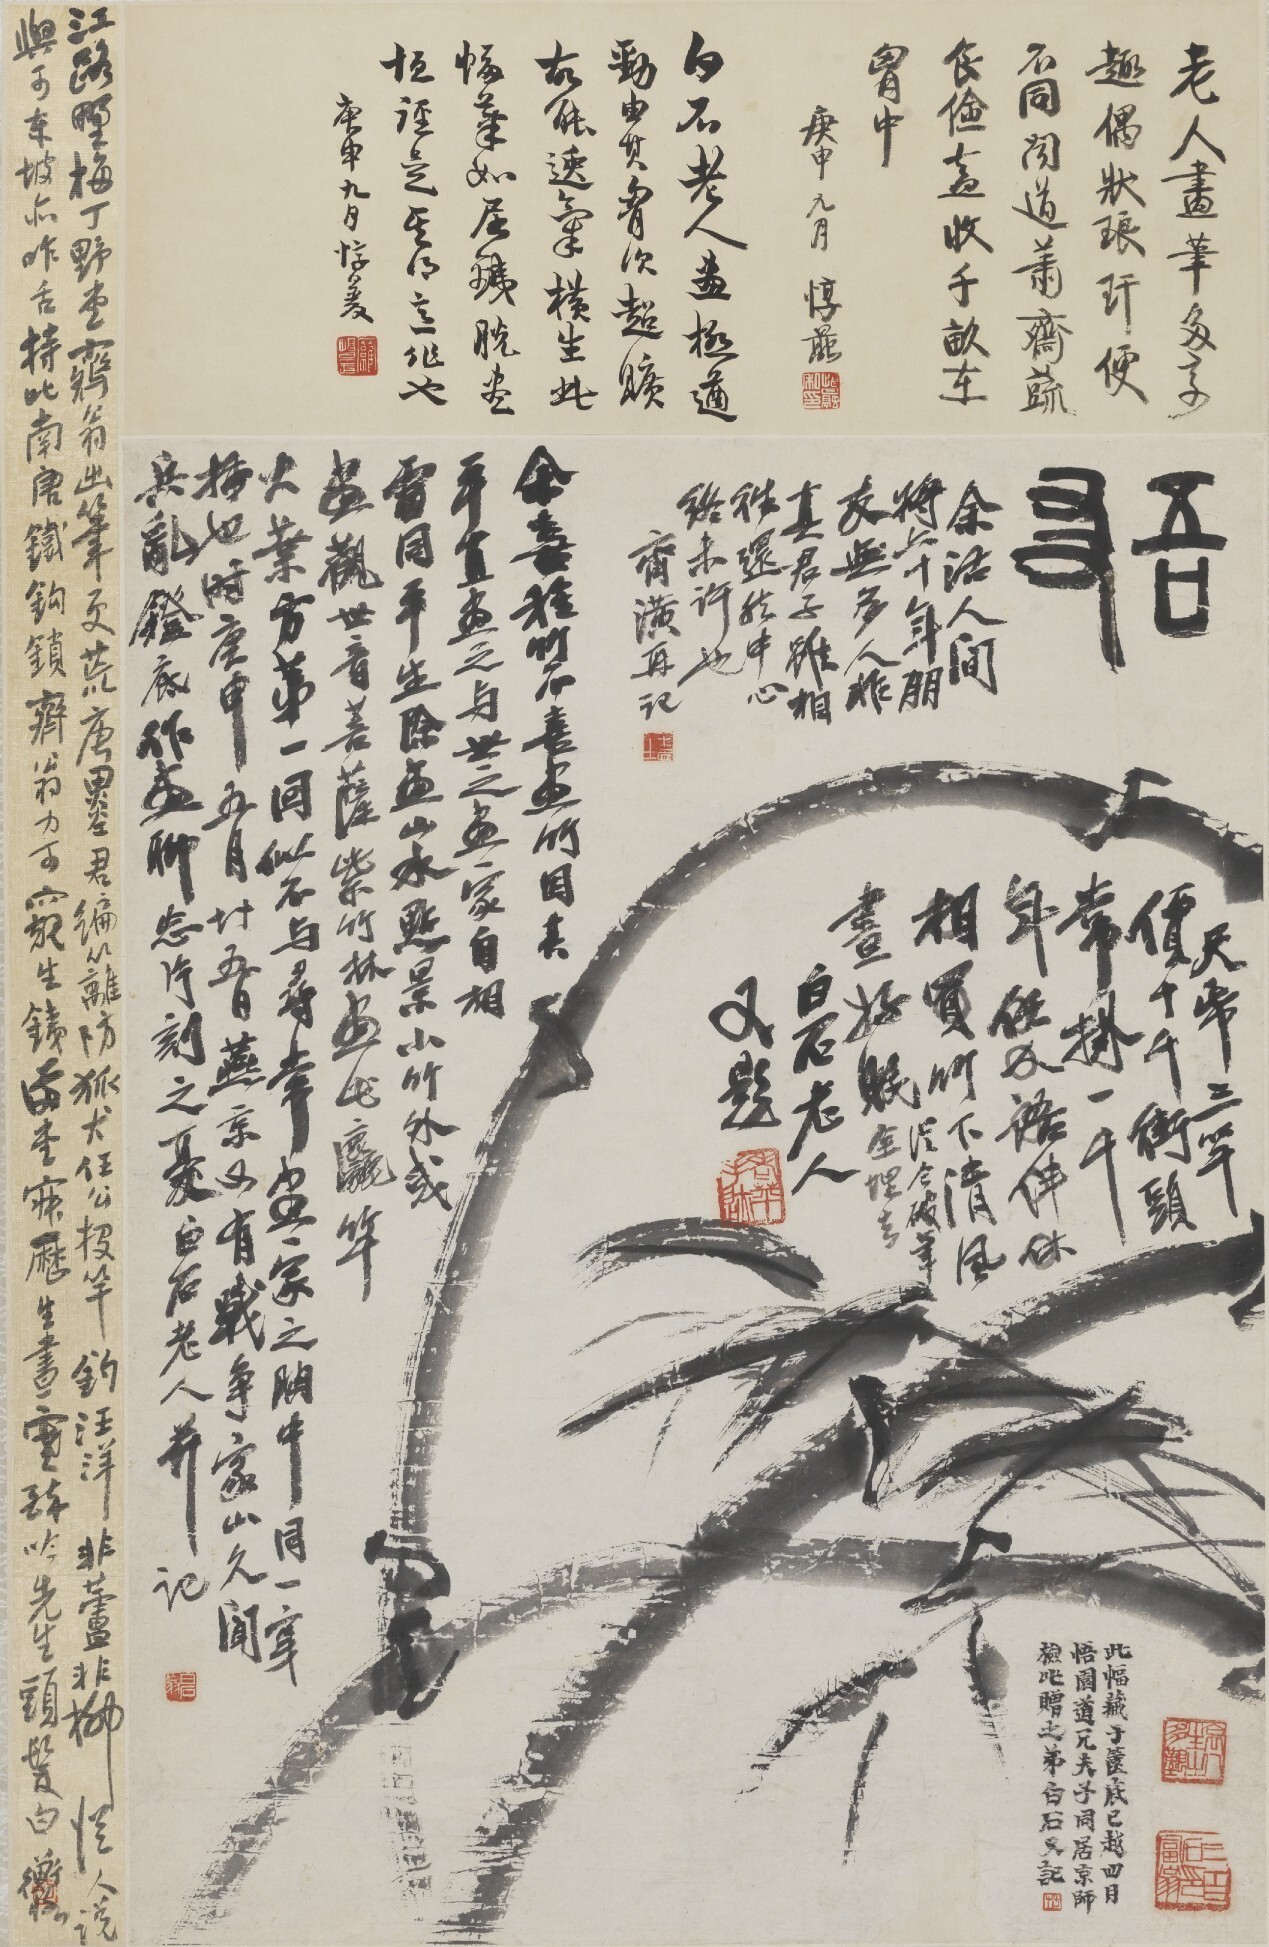 老人畫筆多言
趣偶狀琅玕便
不同聞道蕭齋蔬
食儉盍收千畝在
胷中
庚申九月 惇
白石老人畫極遒
勁由其胷次超曠
故能逸氣橫生此
幅葉如屈鐵脫盡
恒誼是其得意作也
庚申九月惇
吾友
余活人間
將六十年朋
友無多人非
真君子雖相
往還然中心
終未許也
齊潢再記
余喜種竹不喜畫竹因其
平直畫之與世之畫家自相
雷同平生除畫山水點景小竹外或
畫觀世音菩薩紫竹林畫此叢竿
大葉方第一回似不與尋常畫家之胸中同一穿
插也時庚申五月廿五日燕京又有戰爭家山久聞
兵亂鐙底作畫聊忘片刻之憂白石老人并記
天常三竿
價十千街頭
常掛一千
年任君諸伸休
相買竹下清風
從今破筆
畫好賤
全埋去
白石老人
又題
此幅藏于篋底已越四月
悟園道兄夫子同居京師
檢此贈之弟白石又記
江路野梅丁野堂齋翁出筆更荒唐墨君編籬防狐犬任公投竿釣汪洋非蘆非柳從人說
與可東坡亦咋舌持此南唐鐵鉤鎖齊翁力可
生鐵
畫室
吟先生頭髮白